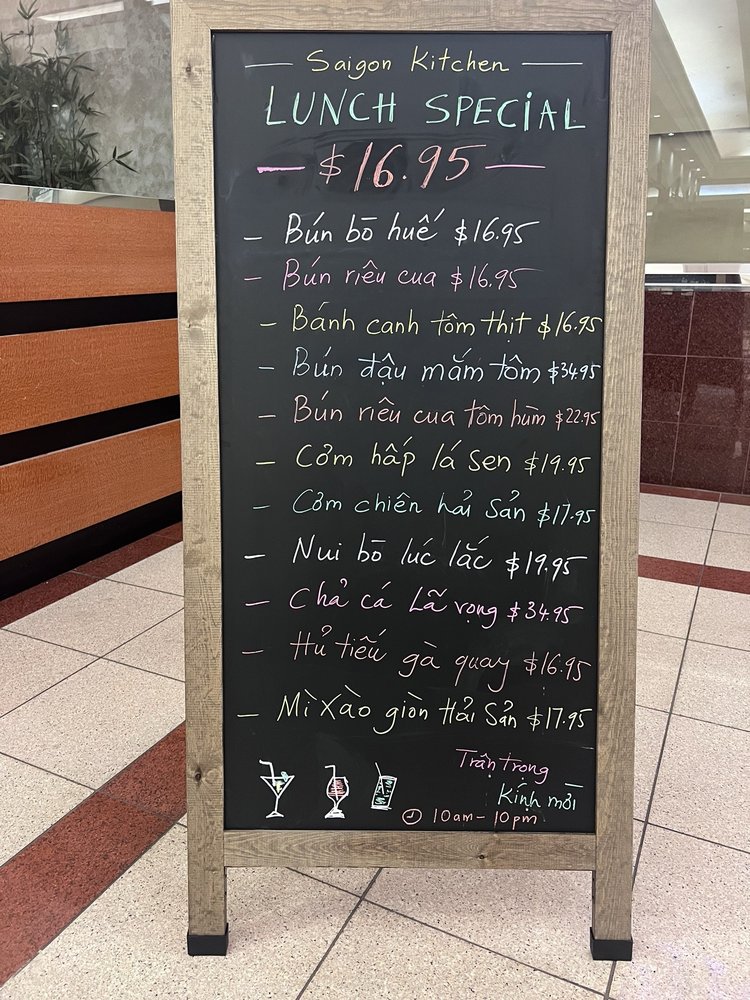 Saigon Kitchen
LUNCH SPECIAL
$16.95
- Bún bō huế $16.95
- Bún riêu cua $16.95
- Bánh canh tôm thịt $16.95
- Bún đậu mắm tôm $34.95
- Bún riêu cua tôm hùm $22.95
- Cơm hấp lá sen $19.95
- Cơm chiên hải sản $17.95
- Nui bō lúc lắc $19.95
- Chả cá Lã vọng $34.95
- Hủ tiếu gà quay $16.95
- Mì xào giòn Hải Sản $17.95
Trận trong
Kính mời
10am-10pm